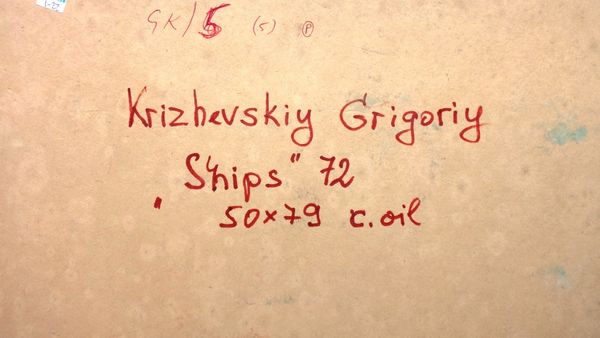 1-22
GK/5 (5) P
Krizhevskiy Grigoriy
"Ships" 72
50x79 c.oil